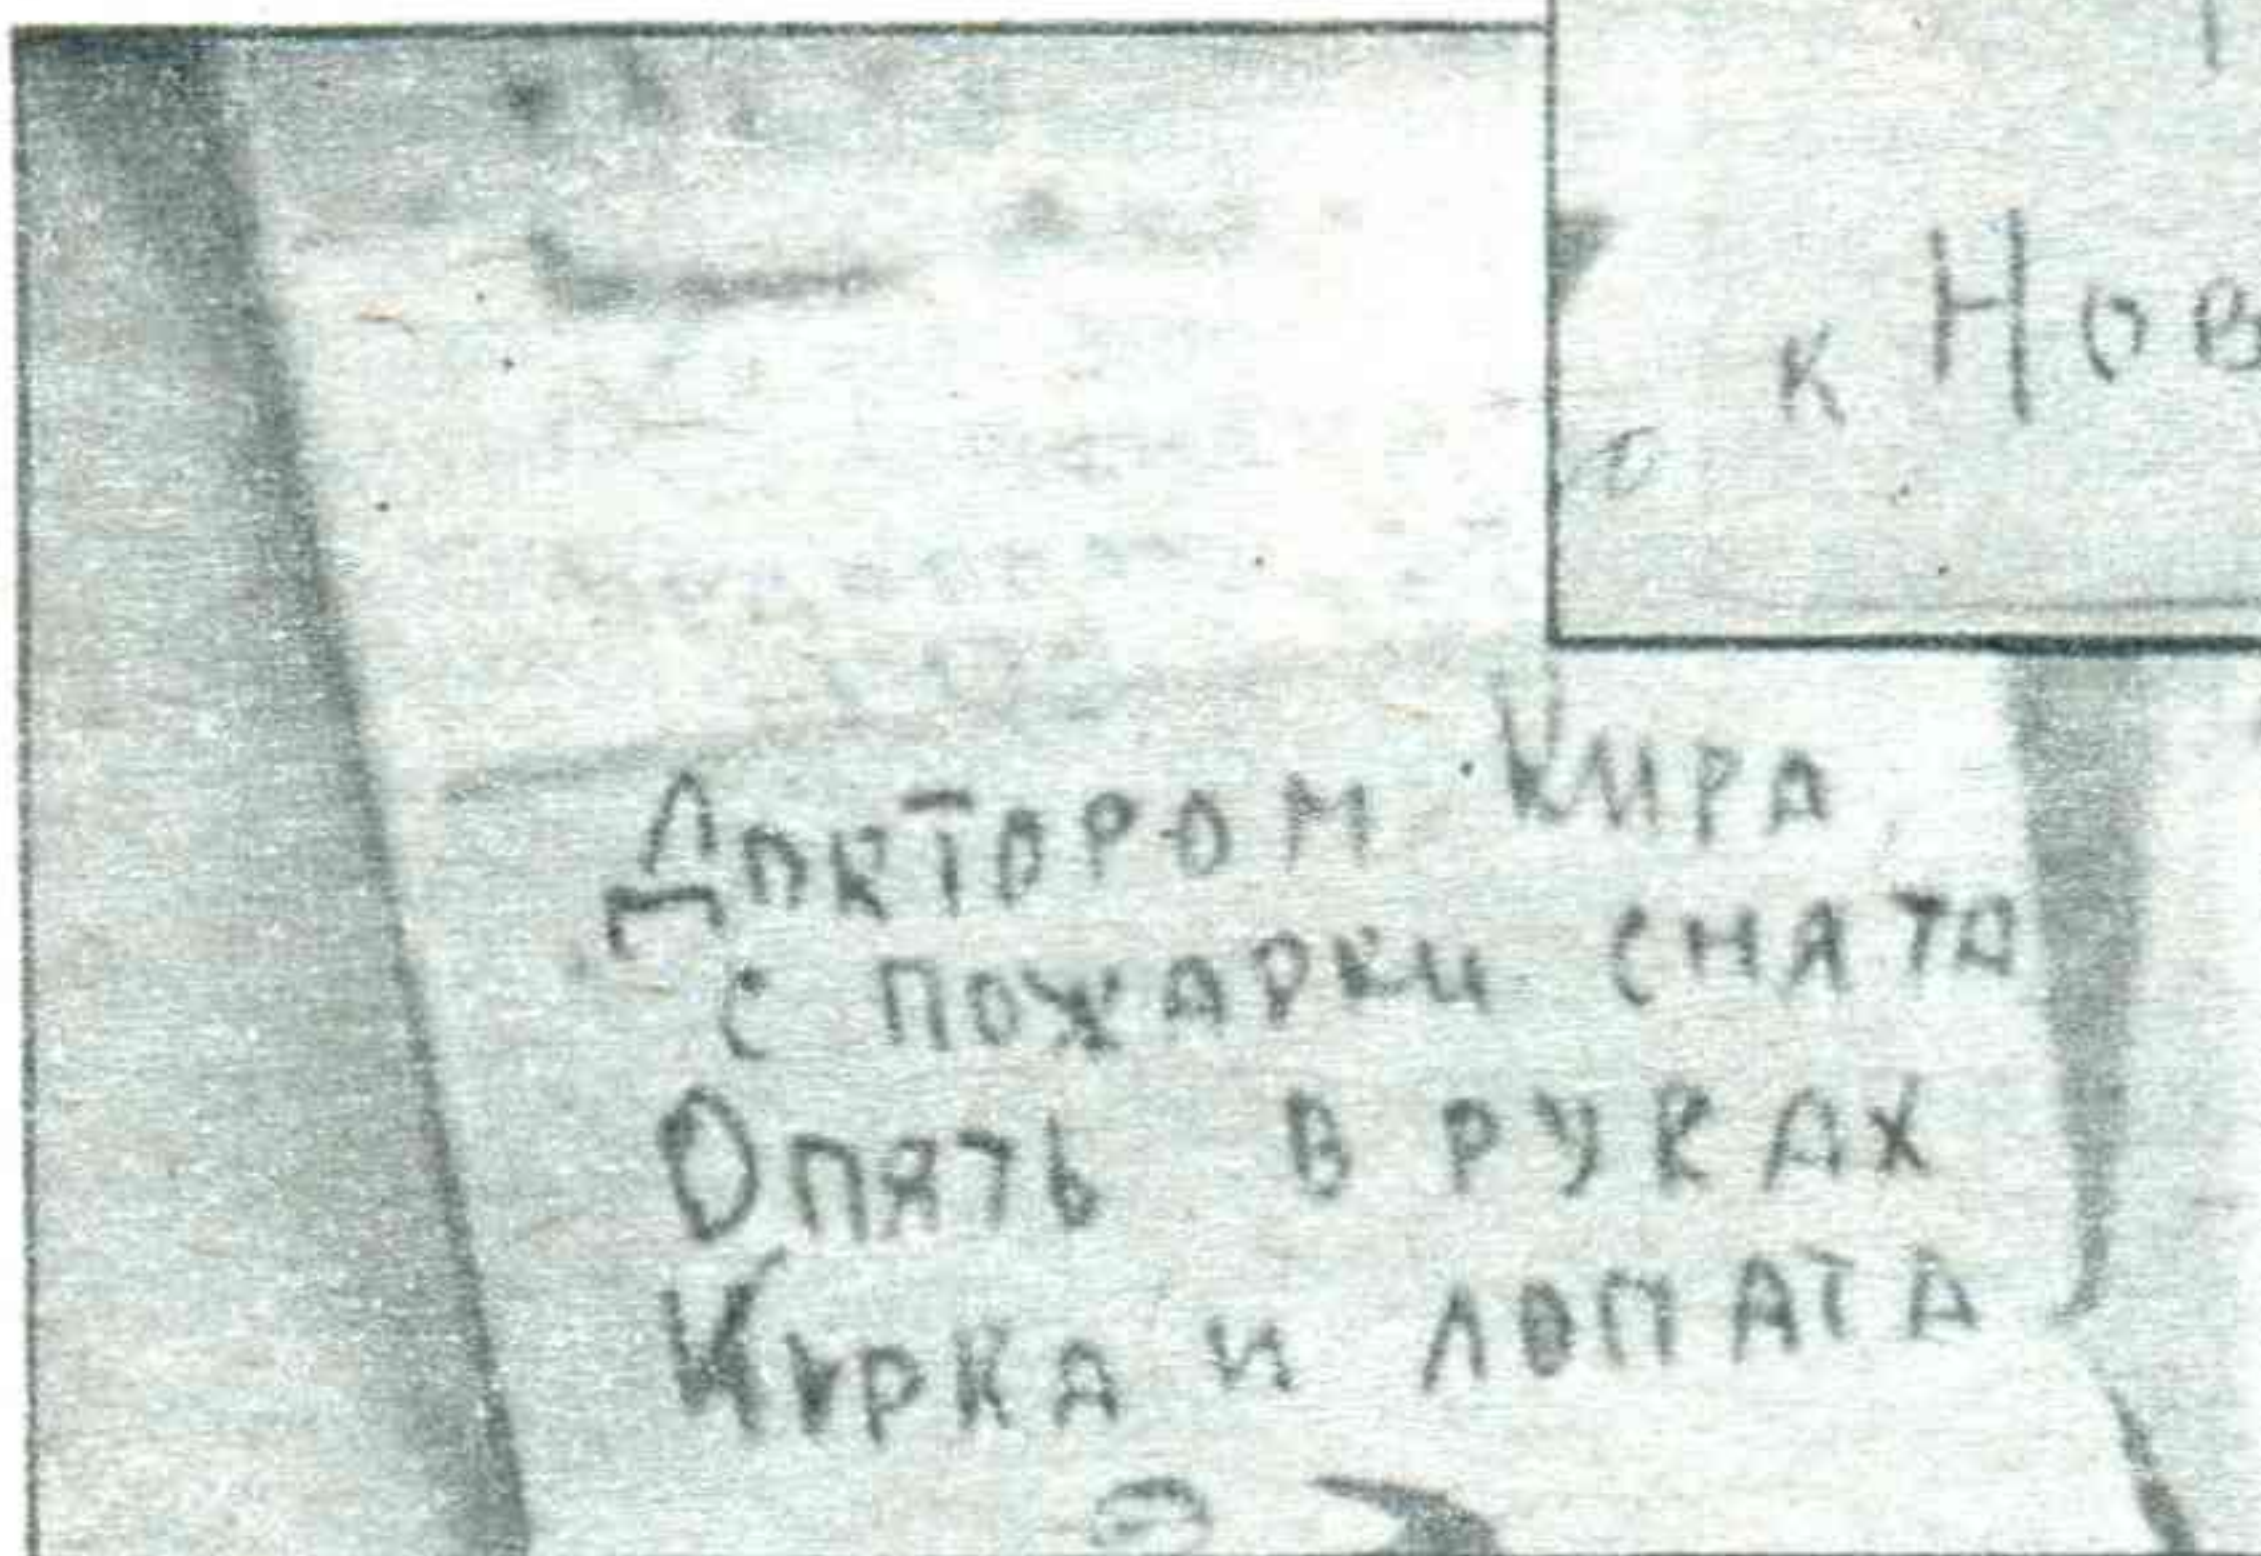 к Нов
Доктором Кира
с пожарки снята
Опять в руках
Кирка и лопата